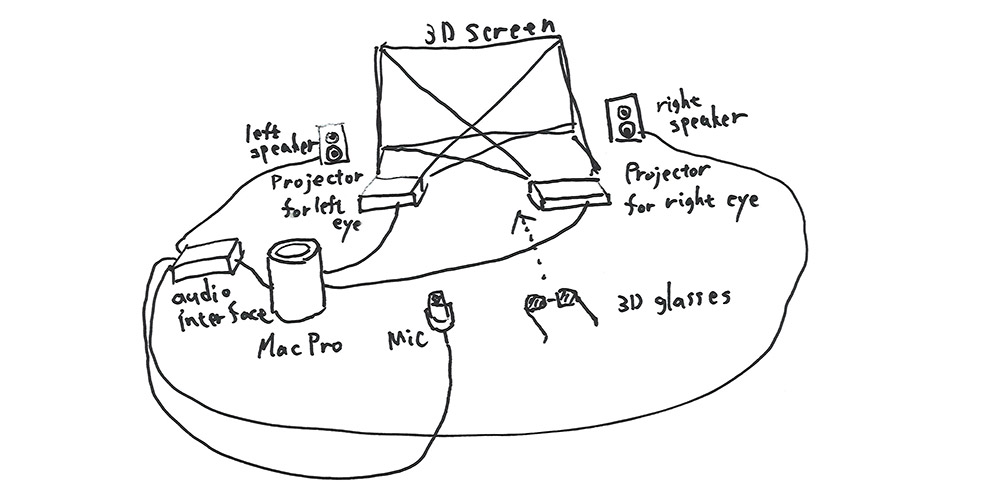 3D Screen
left
speaker
right
speaker
Projector
for left
eye
Projector
for right eye
audio
interface
Mac Pro
Mic
3D glasses